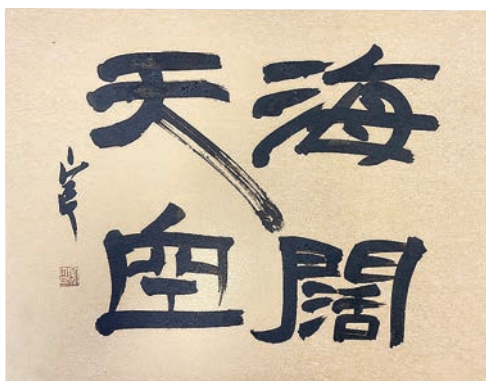 海闊
天空